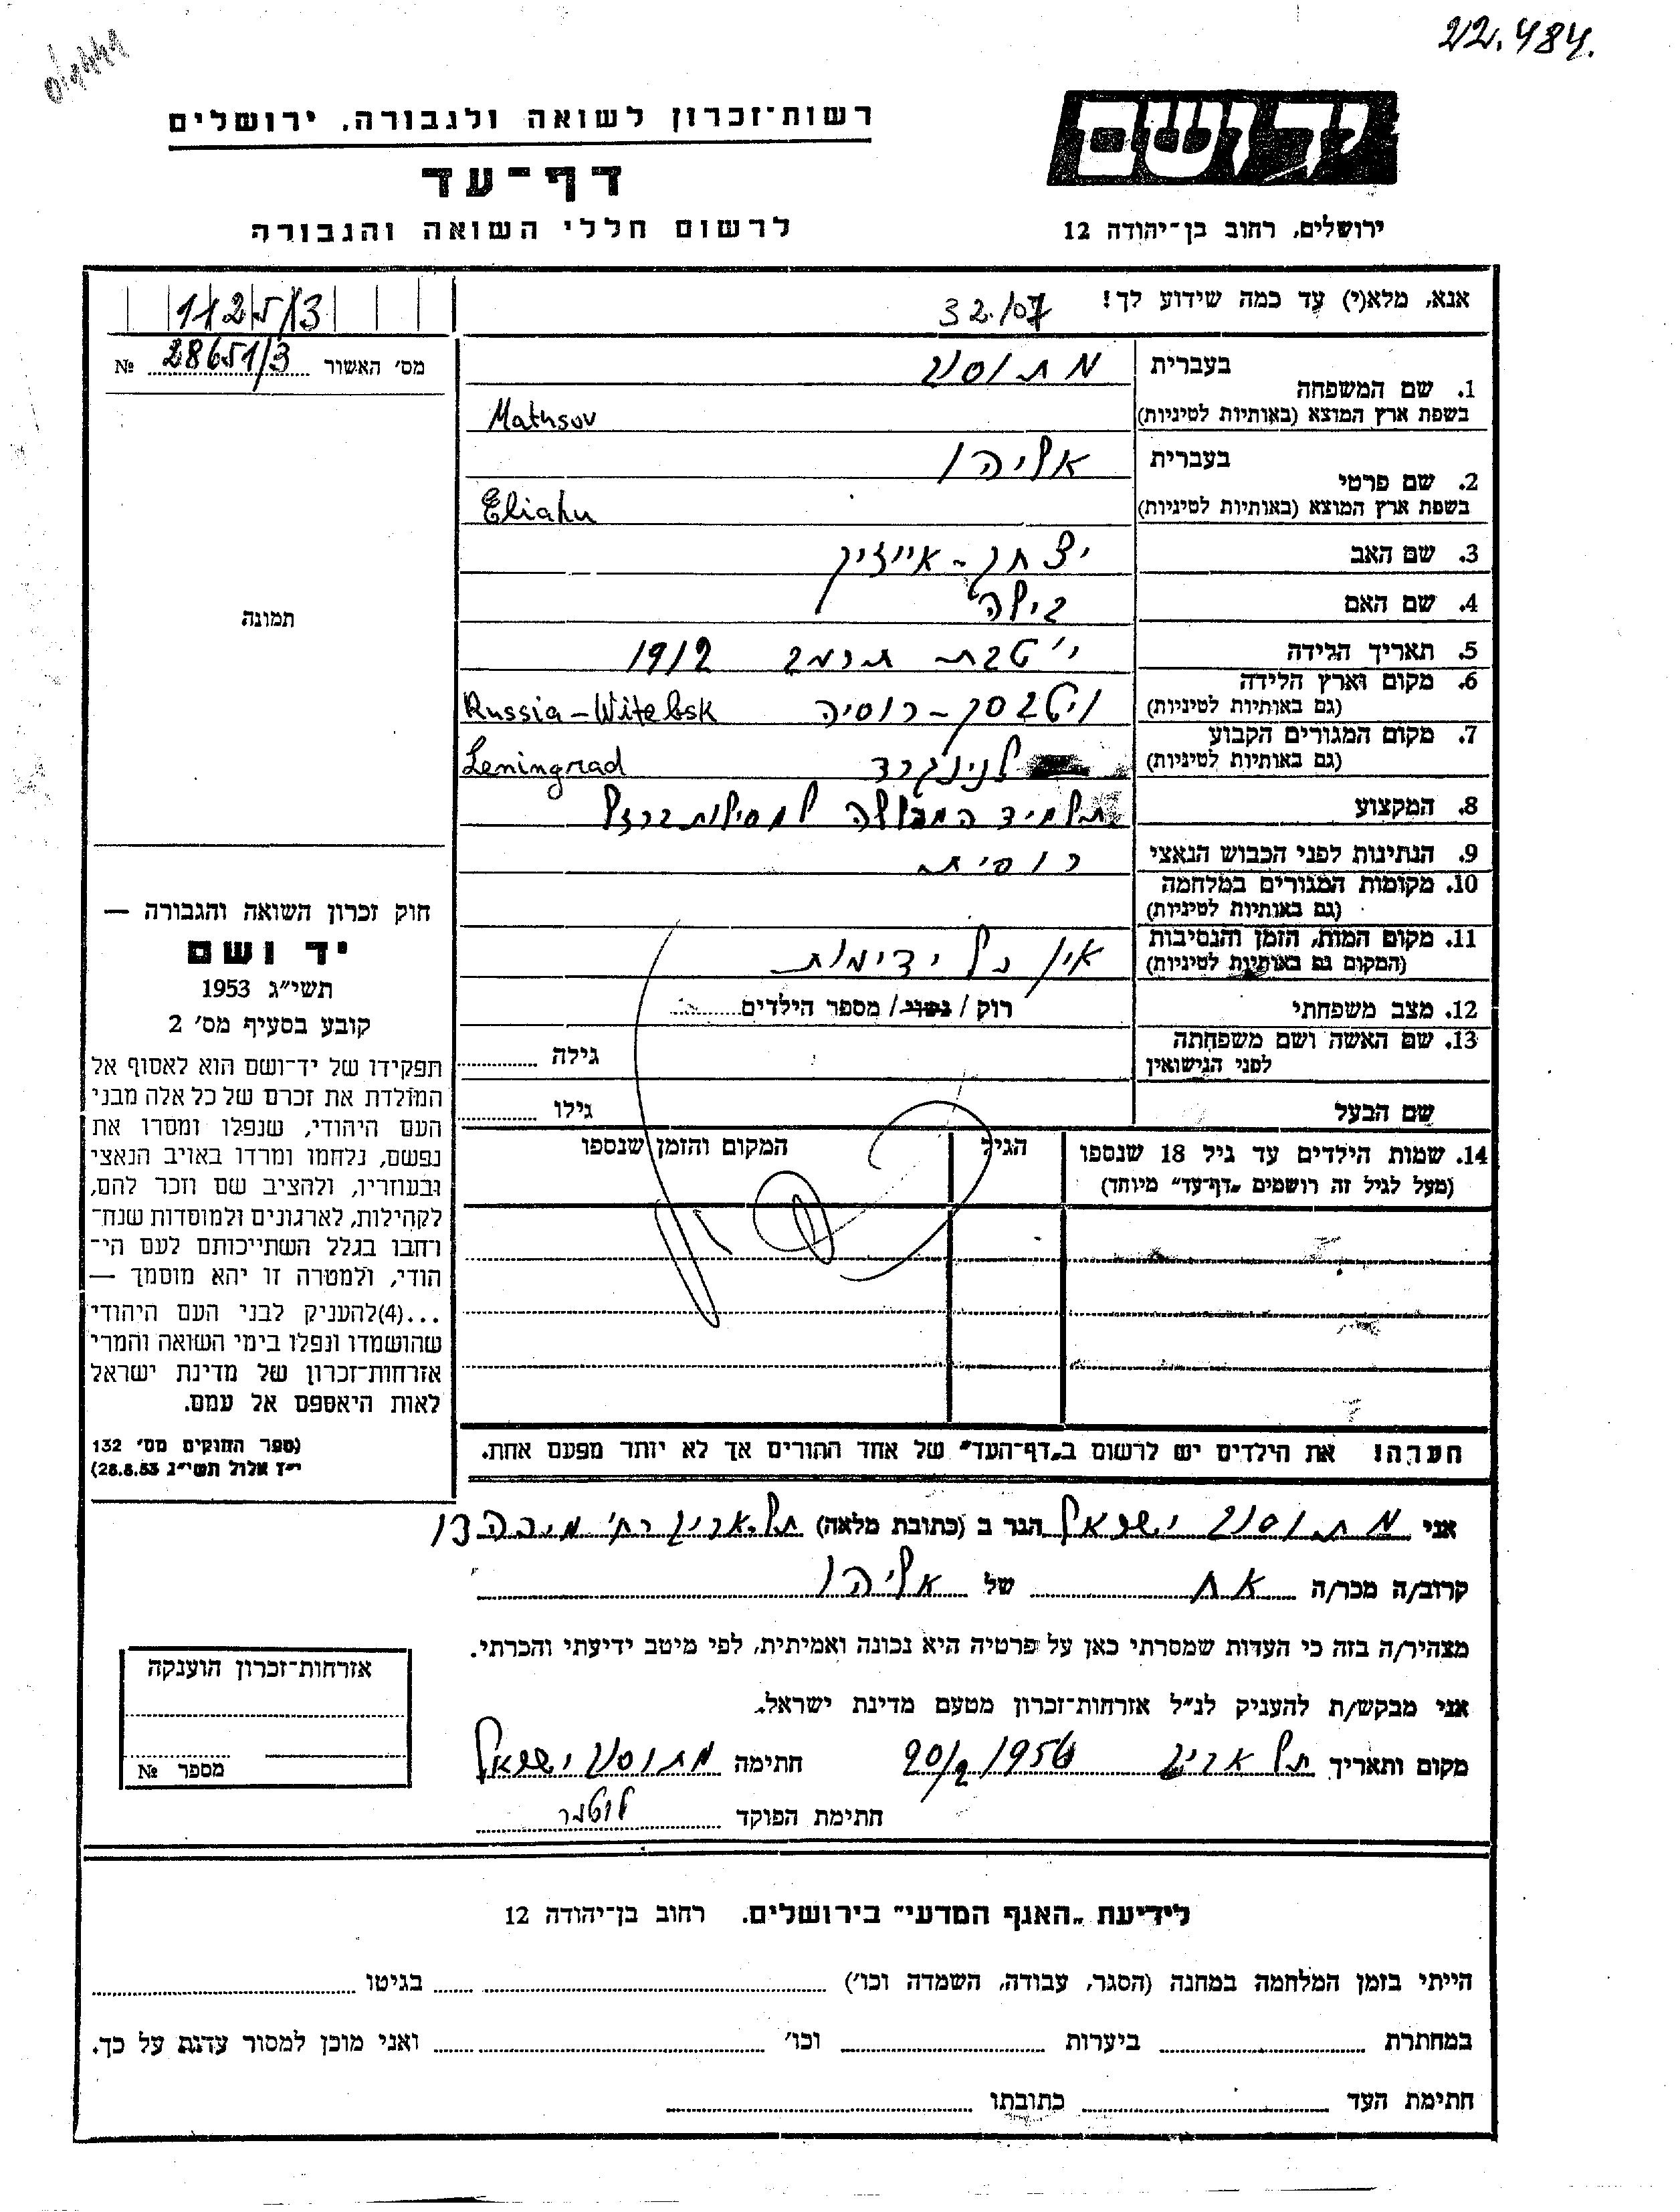 22.484.
רשות־זכרון לשואה ולגבורה, ירושלים
דף־עד
לרשום חללי השואה והגבורה
יד ושם
ירושלים, רחוב בן־יהודה 12
אנא, מלא(י) עד כמה שידוע לך!
32.107
1125/3
מס׳ האשור 28651/3 №
תמונה
1. שם המשפחה
בעברית מתוסוב
בשפת ארץ המוצא (באותיות לטיניות) Mathsov
2. שם פרטי
בעברית אליהו
בשפת ארץ המוצא (באותיות לטיניות) Eliahu
3. שם האב יצחק-אייזיק
4. שם האם בילה
5. תאריך הלידה י׳ טבת 1912
6. מקום וארץ הלידה ויטבסק-רוסיה Russia-Witebsk
(גם באותיות לטיניות)
7. מקום המגורים הקבוע לנינגרד Leningrad
(גם באותיות לטיניות)
8. המקצוע תלמיד המכללה למסילות ברזל
9. הנתינות לפני הכבוש הנאצי רוסית
10. מקומות המגורים במלחמה
(גם באותיות לטיניות)
11. מקום המות, הזמן והנסיבות אין כל ידיעות
(המקום גם באותיות לטיניות)
12. מצב משפחתי רוק / נשוי / מספר הילדים
13. שם האשה ושם משפחתה
לפני הנישואין
גילה
שם הבעל
גילו
14. שמות הילדים עד גיל 18 שנספו
(מעל לגיל זה רושמים „דף־עד״ מיוחד)
הגיל
המקום והזמן שנספו
הערה! את הילדים יש לרשום ב„דף־העד״ של אחד ההורים אך לא יותר מפעם אחת.
חוק זכרון השואה והגבורה —
יד ושם
תשי״ג 1953
קובע בסעיף מס׳ 2
תפקידו של יד־ושם הוא לאסוף אל
המולדת את זכרם של כל אלה מבני
העם היהודי, שנפלו ומסרו את
נפשם, נלחמו ומרדו באויב הנאצי
ובעוזריו, ולהציב שם וזכר להם,
לקהילות, לארגונים ולמוסדות שנח־
רחבו בגלל השתייכותם לעם הי־
הודי, ולמטרה זו יהא מוסמך —
...(4)להעניק לבני העם היהודי
שהושמדו ונפלו בימי השואה והמרי
אזרחות־זכרון של מדינת ישראל
לאות היאספם אל עמם.
(ספר החוקים מס׳ 132
י״ז אלול תשי״ג 28.8.53)
אני מתוסוב ישראל הגר ב (כתובת מלאה) תל-אביב רח׳
קרוב/ה מכר/ה אח של אליהו
מצהיר/ה בזה כי העדות שמסרתי כאן על פרטיה היא נכונה ואמיתית, לפי מיטב ידיעתי והכרתי.
אני מבקש/ת להעניק לנ״ל אזרחות־זכרון מטעם מדינת ישראל.
מקום ותאריך תל אביב 20/2 1956 חתימה מתוסוב ישראל
חתימת הפוקד
אזרחות־זכרון הוענקה
מספר №
לידיעת „האגף המדעי״ בירושלים. רחוב בן־יהודה 12
הייתי בזמן המלחמה במחנה (הסגר, עבודה, השמדה וכו׳) בגיטו
במחתרת ביערות וכו׳ ואני מוכן למסור עדות על כך.
חתימת העד כתובתו